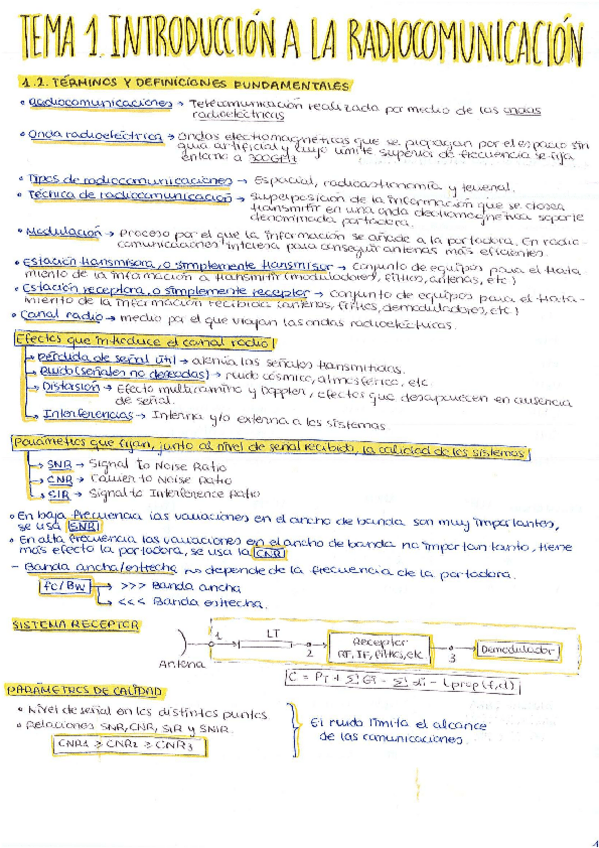 TEMA 1. INTRODUCCIÓN A LA RADIOCOMUNICACIÓN
1.2. TÉRMINOS Y DEFINICIONES FUNDAMENTALES
• Radiocomunicaciones → Telecomunicación realizada por medio de las ondas
radioeléctricas
• Onda radioeléctrica → Ondas electromagnéticas que se propagan por el espacio sin
guía artificial y cuyo límite superior de frecuencia se fija
entorno a 300GHz
• Tipos de radiocomunicaciones → Espacial, radioastronomía y terrenal.
• Técnica de radiocomunicación → Superposición de la información que se desea
transmitir en una onda electromagnética soporte
denominada portadora.
• Modulación → Proceso por el que la información se añade a la portadora. En radio-
comunicaciones interesa para conseguir antenas más eficientes.
• Estación transmisora, o simplemente transmisor → conjunto de equipos para el trata-
miento de la información a transmitir (moduladores, filtros, antenas, etc)
• Estación receptora, o simplemente receptor → conjunto de equipos para el trata-
miento de la información recibida (antenas, filtros, demoduladores, etc)
• Canal radio → medio por el que viajan las ondas radioeléctricas.
Efectos que introduce el canal radio
→ Pérdida de señal útil → atenúa las señales transmitidas.
→ Ruido (señales no deseadas) → ruido cósmico, atmosférico, etc.
→ Distorsión → Efecto multicamino y Doppler, efectos que desaparecen en ausencia
de señal.
→ Interferencias → Interna y/o externa a los sistemas
Parámetros que fijan, junto al nivel de señal recibido, la calidad de los sistemas
→ SNR → Signal to Noise Ratio
→ CNR → Carrier to Noise Ratio
→ SIR → Signal to Interference Ratio
• En baja frecuencia las variaciones en el ancho de banda son muy importantes,
se usa SNR
• En alta frecuencia las variaciones en el ancho de banda no importan tanto, tiene
más efecto la portadora, se usa la CNR
- Banda ancha/estrecha → depende de la frecuencia de la portadora.
fc/BW → >>> Banda ancha
→ <<< Banda estrecha.
SISTEMA RECEPTOR
1 LT 2 Receptor RF, IF, filtros, etc 3 Demodulador
Antena
C = Pr + ΣGi - Σαi - Lprop(f,d)
PARÁMETROS DE CALIDAD
• Nivel de señal en los distintos puntos
• Relaciones SNR, CNR, SIR y SNIR.
CNR1 ≥ CNR2 ≥ CNR3
El ruido limita el alcance
de las comunicaciones.
1